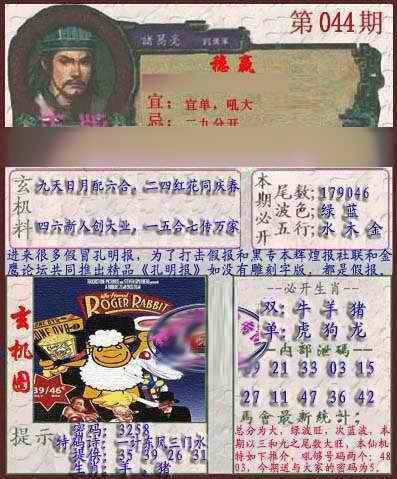 第044期
諸葛亮
稳赢
宜：宜单，吼大
忌：二九分开
玄机料
九天日月配六合，二四红花同庆春
四六新人创大业，一五合七传万家
本期必开
尾数：179046
波色：绿 蓝
五行：水 木 金
进来很多假冒孔明报，为了打击假报和黑专本辉煌报社联和金
鹰论坛共同推出精品《孔明报》如没有雕刻字版，都是假报。
玄机图
ROGER RABBIT
39/46
--必开生肖--
双：牛 羊 猪
单：虎 狗 龙
--内部泄码--
21 33 03 15
27 11 47 36 42
马会最新统计：
总部分为大，绿波旺，次蓝波，本
期以三和九之尾数大旺，本仙机
特如下推介，吼够号码两个：48
03，今期送与大家的密码为5。
提示
密码：3258
特码诗：一计东风三门水
提供：35 39 26 31
生肖：羊，猪